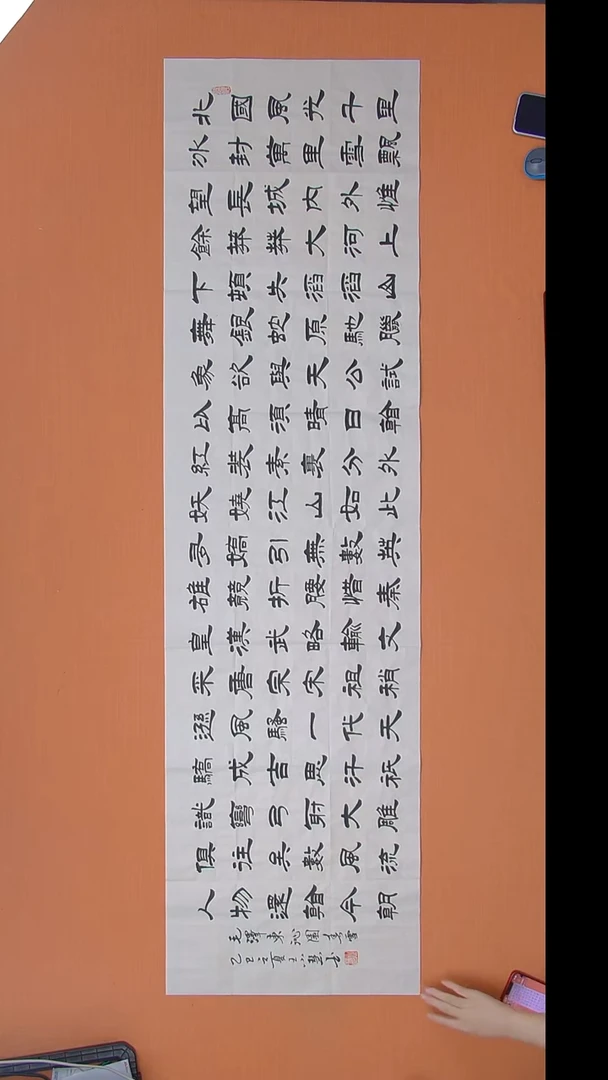 北國風光千里
冰封萬里雪飄
望長城內外惟
餘莽莽大河上
下頓失滔滔山
舞銀蛇原馳臘
象欲與天公試
比高須晴日看
紅裝素裹分外
妖嬈江山如此
多嬌引無數英
雄競折腰惜秦
皇漢武略輸文
采唐宗宋祖稍
遜風騷一代天
驕成吉思汗祇
識彎弓射大雕
俱往矣數風流
人物還看今朝
毛澤東沁園春雪
乙巳之夏王